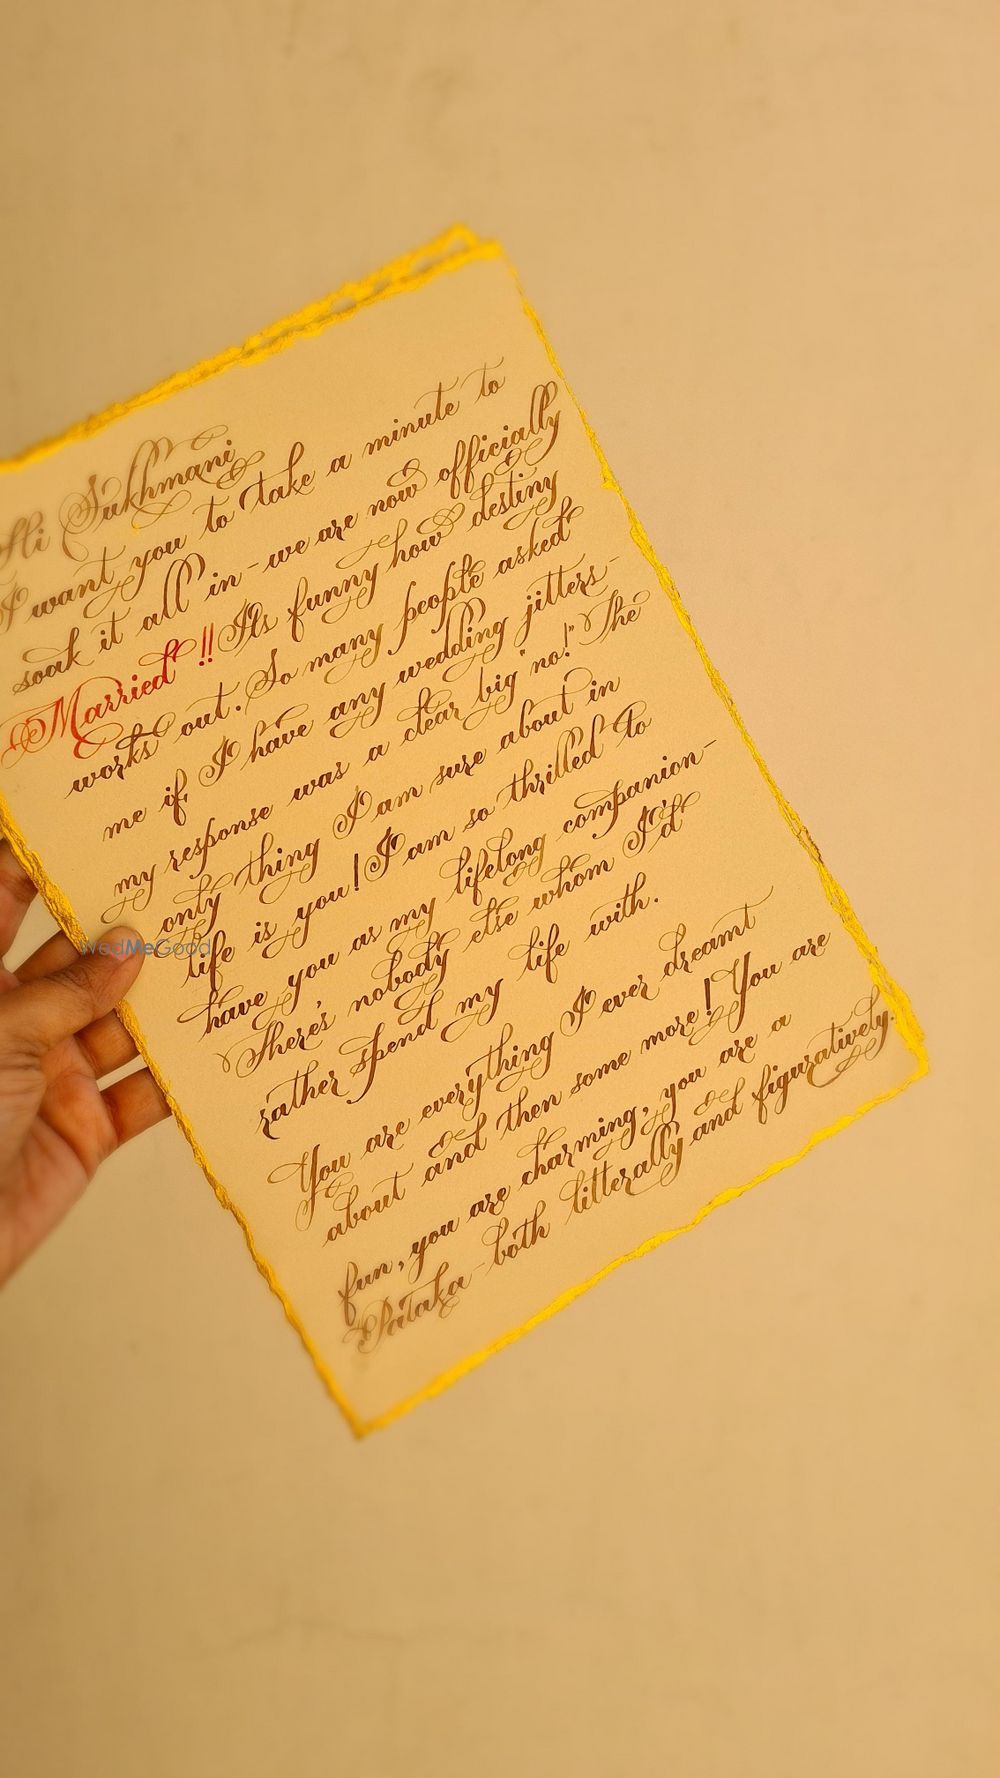 Hi Sukhmani
I want you to take a minute to
soak it all in - we are now officially
Married !! Its funny how destiny
works out. So many people asked
me if I have any wedding jitters -
my response was a clear big "no!" The
only thing I am sure about in
life is you! I am so thrilled to
have you as my lifelong companion -
There's nobody else whom I'd
rather spend my life with.
You are everything I ever dreamt
about and then some more! You are
fun, you are charming, you are a
Pataka - both litterally and figuratively.
WedMeGood